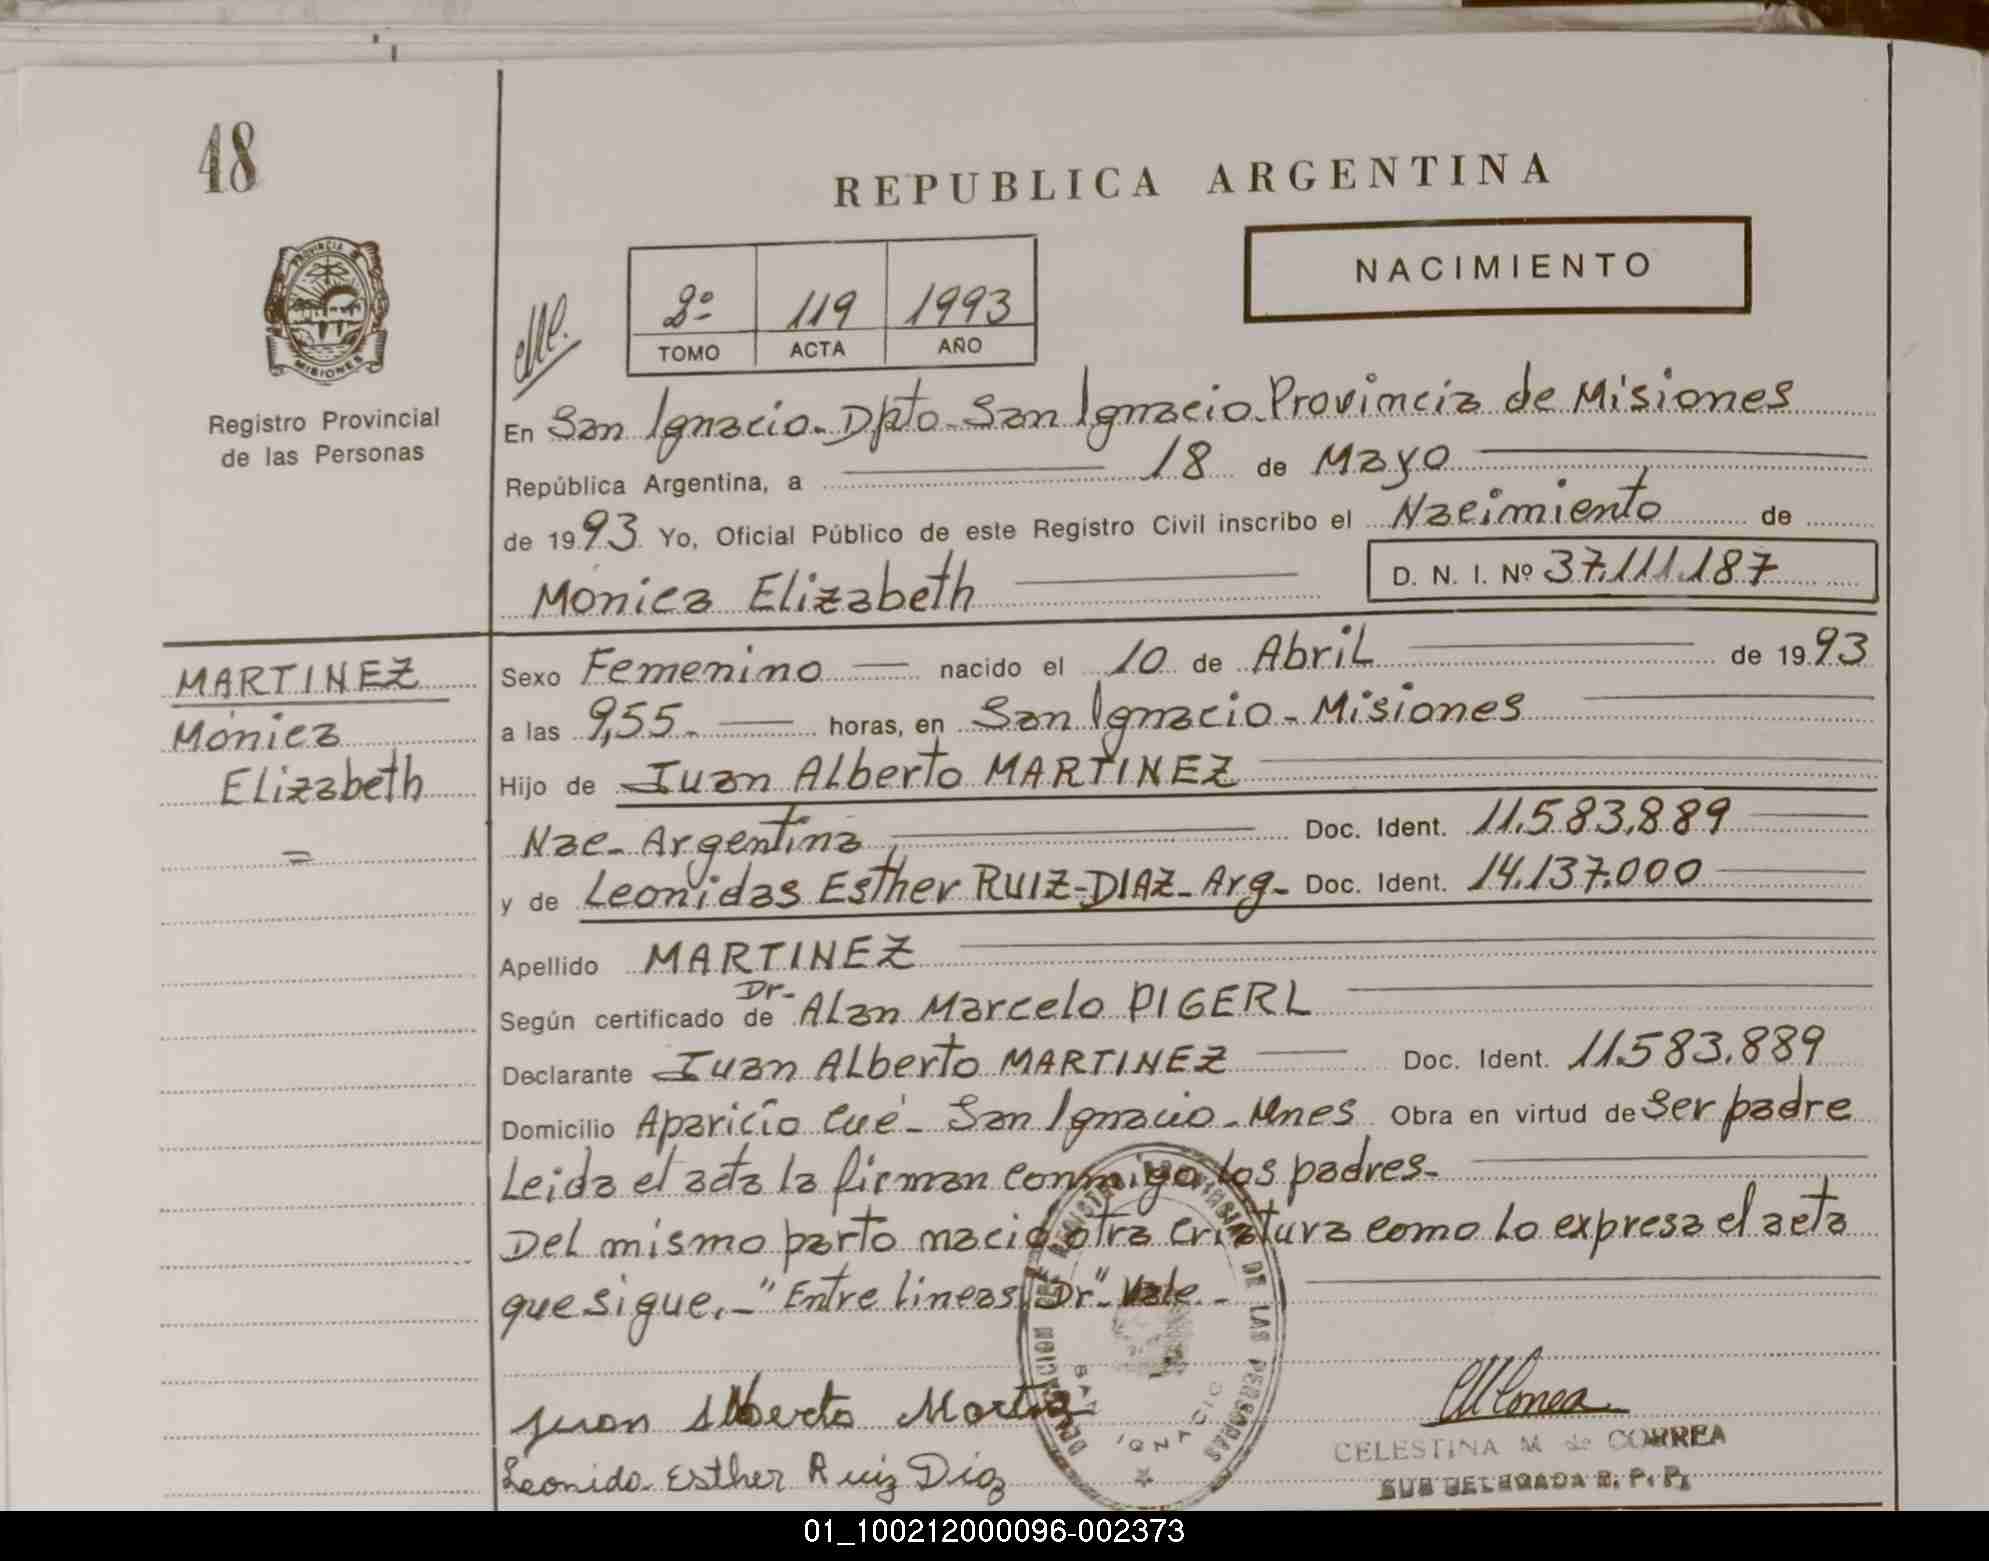 48
REPUBLICA ARGENTINA
NACIMIENTO
PROVINCIA
MISIONES
Registro Provincial
de las Personas
2º 119 1993
TOMO ACTA AÑO
En San Ignacio - Dpto - San Ignacio - Provincia de Misiones
República Argentina, a 18 de Mayo
de 1993 Yo, Oficial Público de este Registro Civil inscribo el Nacimiento de
Mónica Elizabeth D. N. I. Nº 37.111.187
MARTINEZ
Mónica
Elizabeth
Sexo Femenino nacido el 10 de Abril de 1993
a las 9,55. horas, en San Ignacio - Misiones
Hijo de Juan Alberto MARTINEZ
Nac - Argentina Doc. Ident. 11.583.889
y de Leonidas Esther RUIZ-DIAZ - Arg - Doc. Ident. 14.137.000
Apellido MARTINEZ
Según certificado de Dr - Alan Marcelo PIGERL
Declarante Juan Alberto MARTINEZ Doc. Ident. 11583.889
Domicilio Aparicio Cué - San Ignacio - Mnes Obra en virtud de Ser padre
Leida el acta la firman conmigo los padres -
Del mismo parto nació otra criatura como lo expresa el acta
que sigue. - "Entre lineas "Dr" - Vale. -
Juan Alberto Martinez
Leonida Esther Ruiz Diaz
DE LAS PERSONAS
SAN IGNACIO
CELESTINA M de CORREA
SUB DELEGADA R. P. P.
01_100212000096-002373